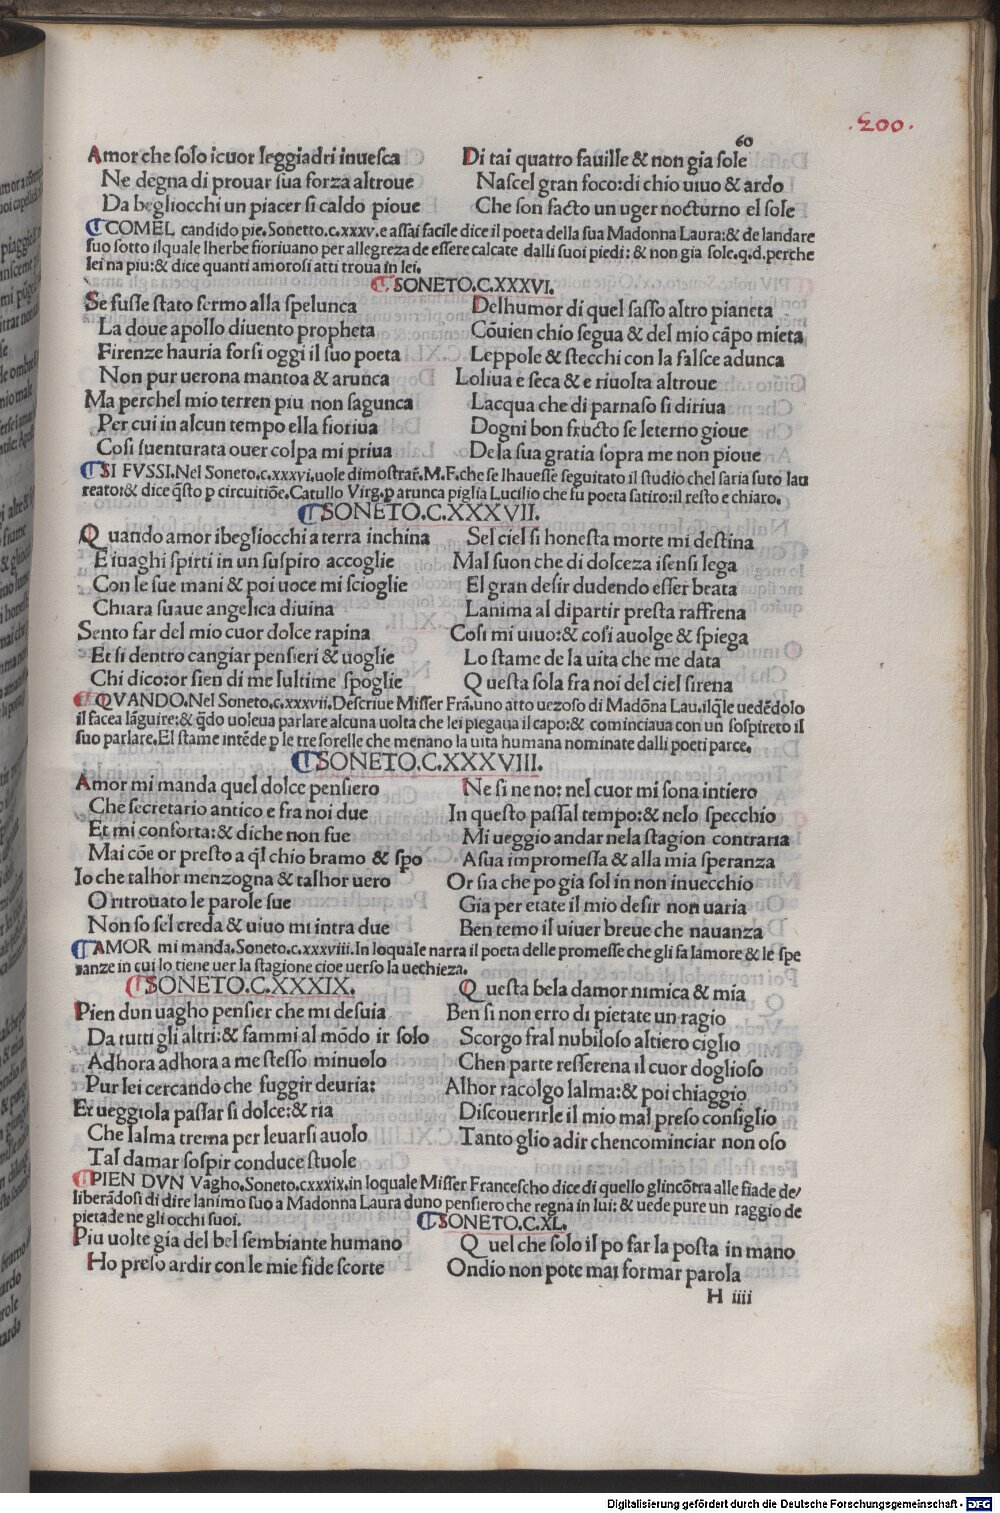 .200.
60
Amor che solo icuor leggiadri inuesca
Ne degna di prouar sua forza altroue
Da begliocchi un piacer si caldo pioue
Di tai quatro fauille & non gia sole
Nascel gran foco:di chio uiuo & ardo
Che son facto un uger nocturno el sole
COMEL candido pie.Sonetto.c.xxxv.e assai facile dice il poeta della sua Madonna Laura:& de landare
suo sotto ilquale lherbe fioriuano per allegreza de essere calcate dalli suoi piedi: & non gia sole.q.d.perche
lei na piu:& dice quanti amorosi atti troua in lei.
SONETO.C.XXXVI.
Se fusse stato fermo alla spelunca
La doue apollo diuento propheta
Firenze hauria forsi oggi il suo poeta
Non pur uerona mantoa & arunca
Ma perchel mio terren piu non sagunca
Per cui in alcun tempo ella fioriua
Cosi suenturata ouer colpa mi priua
Delhumor di quel sasso altro pianeta
Cõuien chio segua & del mio cãpo mieta
Leppole & stecchi con la falsce adunca
Loliua e seca & e riuolta altroue
Lacqua che di parnaso si diriua
Dogni bon fructo se leterno gioue
De la sua gratia sopra me non pioue
SI FVSSI.Nel Soneto.c.xxxvi.uole dimostrar̃.M.F.che se lhauesse seguitato il studio chel saria suto lau
reato:& dice q̃sto p circuitiõe.Catullo Virg.p arunca piglia Lucilio che fu poeta satiro:il resto e chiaro.
SONETO.C.XXXVII.
Quando amor ibegliocchi a terra inchina
E iuaghi spirti in un suspiro accoglie
Con le sue mani & poi uoce mi scioglie
Chiara suaue angelica diuina
Sento far del mio cuor dolce rapina
Et si dentro cangiar pensieri & uoglie
Chi dico:or sien di me lultime spoglie
Sel ciel si honesta morte mi destina
Mal suon che di dolceza isensi lega
El gran desir dudendo esser beata
Lanima al dipartir presta raffrena
Cosi mi uiuo:& cosi auolge & spiega
Lo stame de la uita che me data
Questa sola fra noi del ciel sirena
QVANDO.Nel Soneto.c.xxxvii.Descriue Misser Frã.uno atto uezoso di Madõna Lau.ilq̃le uedẽdolo
il facea lãguire:& q̃do uoleua parlare alcuna uolta che lei piegaua il capo:& cominciaua con un sospireto il
suo parlare.El stame intẽde p le tre sorelle che menano la uita humana nominate dalli poeti parce.
SONETO.C.XXXVIII.
Amor mi manda quel dolce pensiero
Che secretario antico e fra noi due
Et mi conforta:& diche non fue
Mai cõe or presto a q̃l chio bramo & spo
Io che talhor menzogna & talhor uero
O ritrouato le parole sue
Non so sel creda & uiuo mi intra due
Ne si ne no: nel cuor mi sona intiero
In questo passal tempo:& nelo specchio
Mi ueggio andar nela stagion contraria
A sua impromessa & alla mia speranza
Or sia che po gia sol in non inuecchio
Gia per etate il mio desir non uaria
Ben temo il uiuer breue che nauanza
AMOR mi manda.Soneto.c.xxxviii.In loquale narra il poeta delle promesse che gli fa lamore & le spe
ranze in cui lo tiene uer la stagione cioe uerso la uechieza.
SONETO.C.XXXIX.
Pien dun uagho pensier che mi desuia
Da tutti gli altri:& fammi al mõdo ir solo
Adhora adhora a me stesso minuolo
Pur lei cercando che fuggir deuria:
Et ueggiola passar si dolce:& ria
Che lalma trema per leuarsi auolo
Tal damar sospir conduce stuole
Questa bela damor nimica & mia
Ben si non erro di pietate un ragio
Scorgo fral nubiloso altiero ciglio
Chen parte resserena il cuor doglioso
Alhor racolgo lalma:& poi chiaggio
Discouerirle il mio mal preso consiglio
Tanto glio adir chencominciar non oso
PIEN DVN Vagho.Soneto.cxxxix.in loquale Misser Francescho dice di quello glincõtra alle fiade de/
liberãdosi di dire lanimo suo a Madonna Laura duno pensiero che regna in lui: & uede pure un raggio de
pieta de ne gli occhi suoi.
SONETO.C.XL.
Piu uolte gia del bel sembiante humano
Ho preso ardir con le mie fide scorte
Quel che solo il po far la posta in mano
Ondio non pote mai formar parola
H iiii
Digitalisierung gefördert durch die Deutsche Forschungsgemeinschaft - DFG